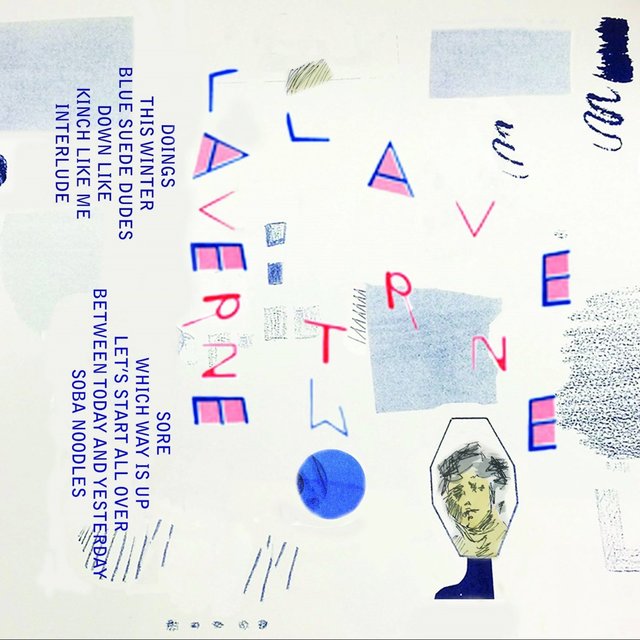 DOINGS
THIS WINTER
BLUE SUEDE DUDES
DOWN LIKE
KINCH LIKE ME
INTERLUDE
SORE
WHICH WAY IS UP
LET'S START ALL OVER
BETWEEN TODAY AND YESTERDAY
SOBA NOODLES
LAVERNE
LAVERNE
TW